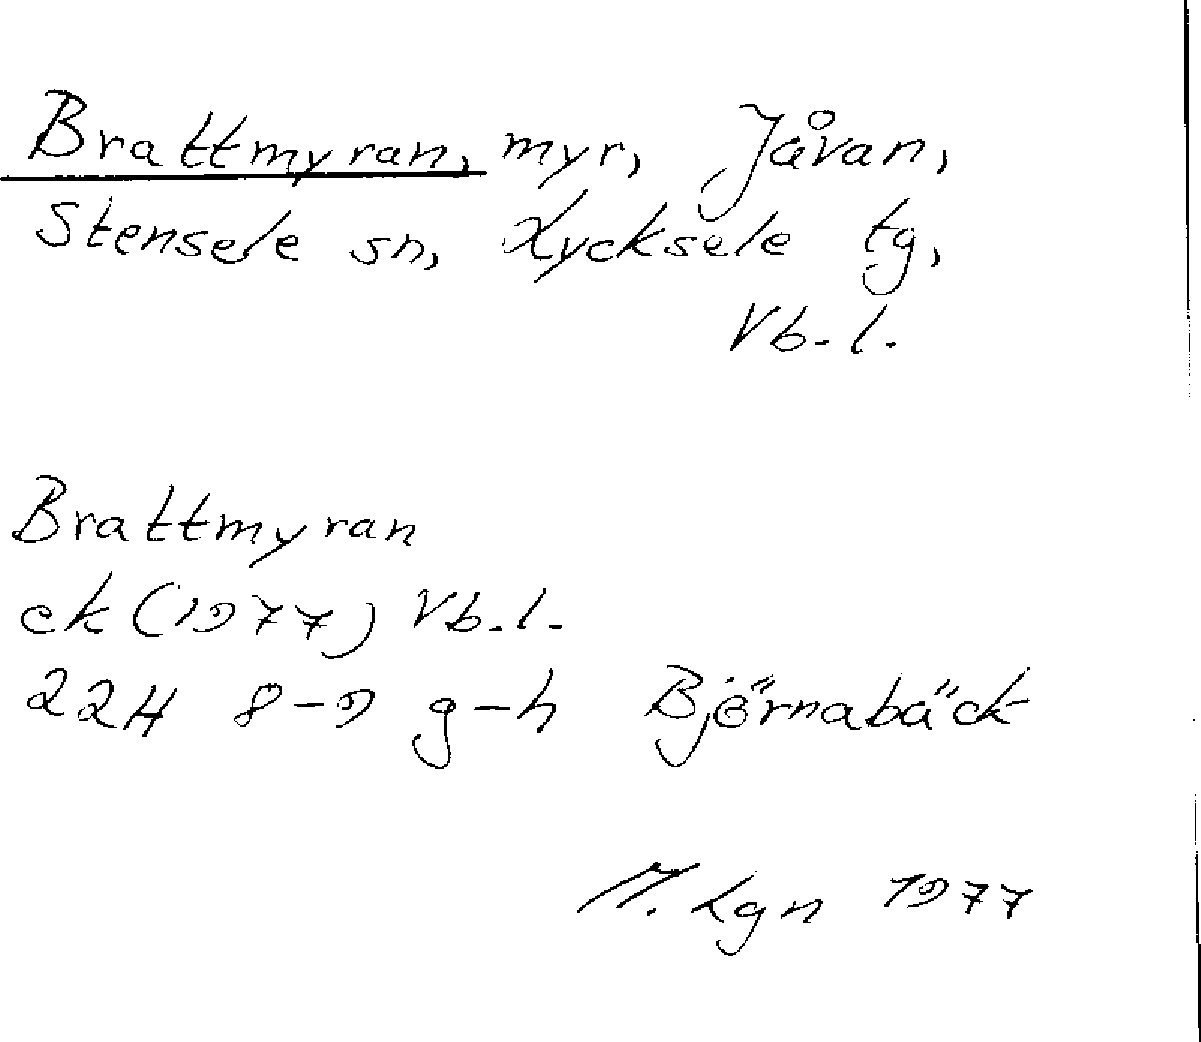 Brattmyran, myr, Jåvan,
Stensele sn, Lycksele tg,
Vb. l.
Brattmyran
ek (1977) Vb. l.
22H 8-9 g-h Björnabäck
M. Lgn 1977